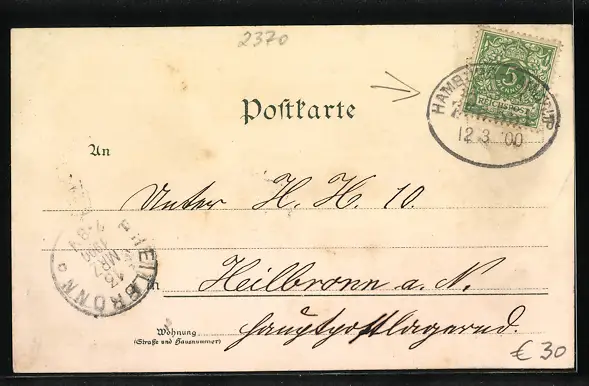 2370
Postkarte
5
REICHSPOST
HAMB
12.3.00
An
Unter H. H. 10.
HEILBRONN
13 MRZ
1900
Heilbronn a. N.
hauptpostlagernd.
Wohnung
(Straße und Hausnummer)
€ 30